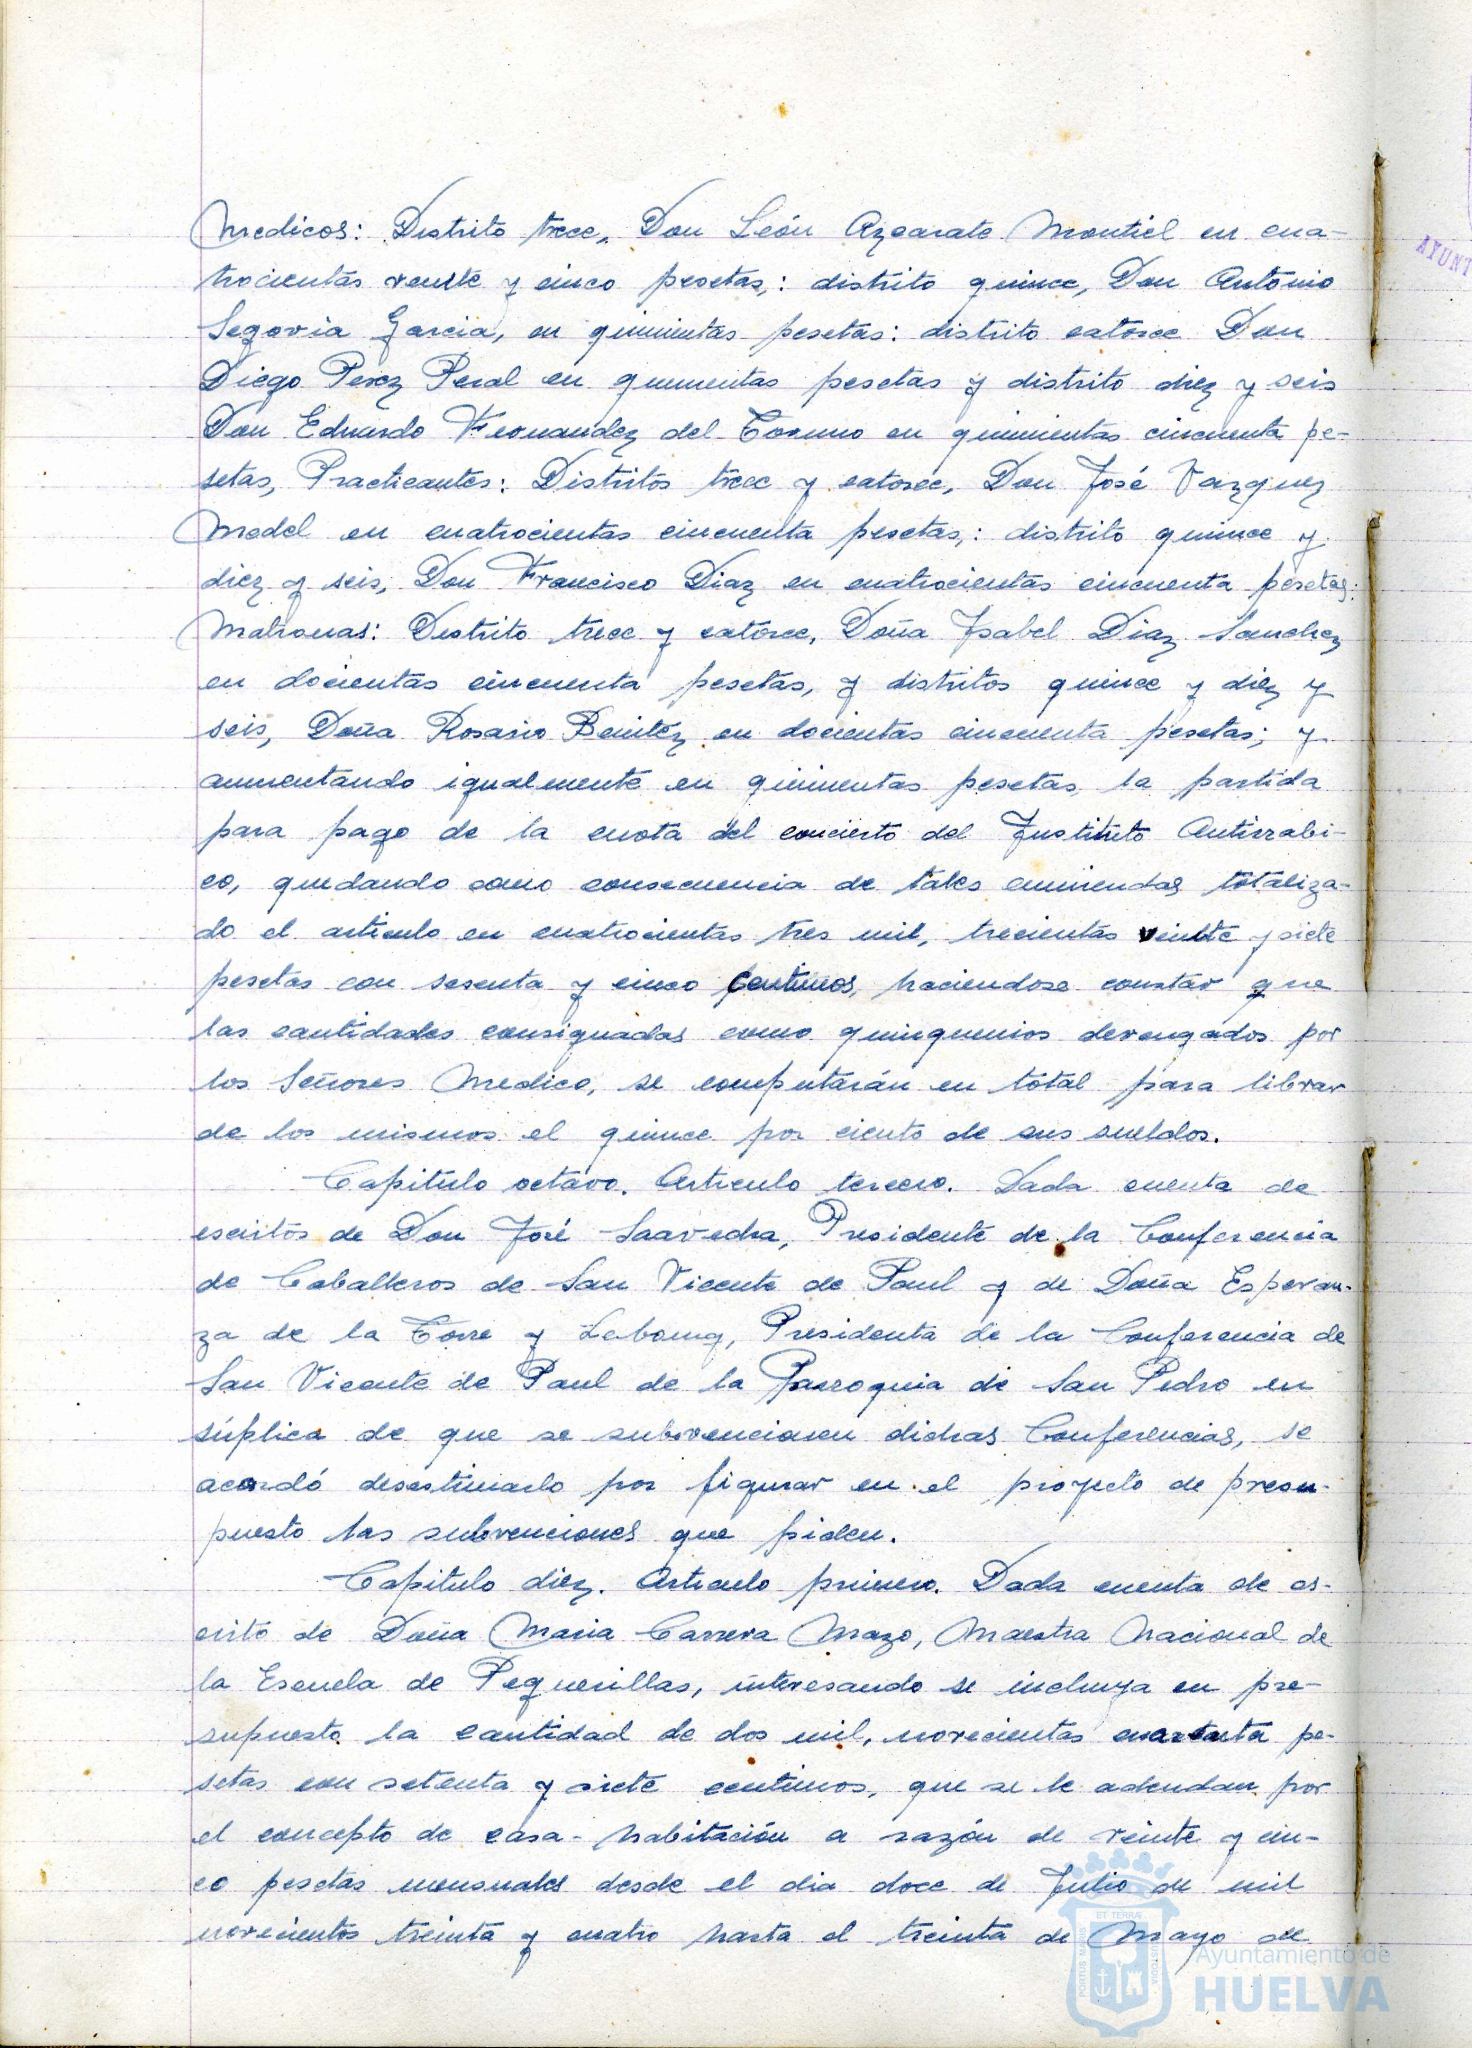 Medicos: Distrito trece, Don León Azcarate Montiel en cua-
trocientas veinte y cinco pesetas,: distrito quince, Don Antonio
Segovia Garcia, en quinientas pesetas: distrito catorce Don
Diego Perez Peral en quinientas pesetas y distrito diez y seis
Don Eduardo Fernandez del Torno en quinientas cincuenta pe-
setas, Practicantes: Distritos trece y catorce, Don José Vazquez
Medel en cuatrocientas cincuenta pesetas,: distrito quince y
diez y seis, Don Francisco Diaz en cuatrocientas cincuenta pesetas:
Matronas: Distrito trece y catorce, Doña Isabel Diaz Sanchez
en docientas cincuenta pesetas, y distritos quince y diez y
seis, Doña Rosario Benitez en docientas cincuenta pesetas; y
aumentando igualmente en quinientas pesetas la partida
para pago de la cuota del concierto del Instituto Antirrabi-
co, quedando como consecuencia de tales enmiendas totaliza-
do el articulo en cuatrocientas tres mil, trecientas veinte y siete
pesetas con sesenta y cinco centimos, haciendose constar que
las cantidades consignadas como quinquenios devengados por
los Señores Medico, se computarán en total para librar
de los mismos el quince por ciento de sus sueldos.
Capitulo octavo. Articulo tercero. Dada cuenta de
escritos de Don José Saavedra, Presidente de la Conferencia
de Caballeros de San Vicente de Paul y de Doña Esperan-
za de la Torre y, Presidenta de la Conferencia de
San Vicente de Paul de la Parroquia de San Pedro en
súplica de que se subvencionen dichas Conferencias, se
acordó desestimarlo por figurar en el proyecto de presu-
puesto las subvenciones que piden.
Capitulo diez. Articulo primero. Dada cuenta de es-
crito de Doña Maria Carrera Mazo, Maestra Nacional de
la Escuela de Pequerillas, interesando se incluya en pre-
supuesto la cantidad de dos mil, novecientas cuarenta pe-
setas con setenta y siete centimos, que se le adeudan por
el concepto de casa-habitación a razón de veinte y cin-
co pesetas mensuales desde el dia doce de Julio de mil
novecientos treinta y cuatro hasta el treinta de Mayo de
AYUNT
PORTUS MARIS ET TERRAE CUSTODIA
Ayuntamiento de
HUELVA